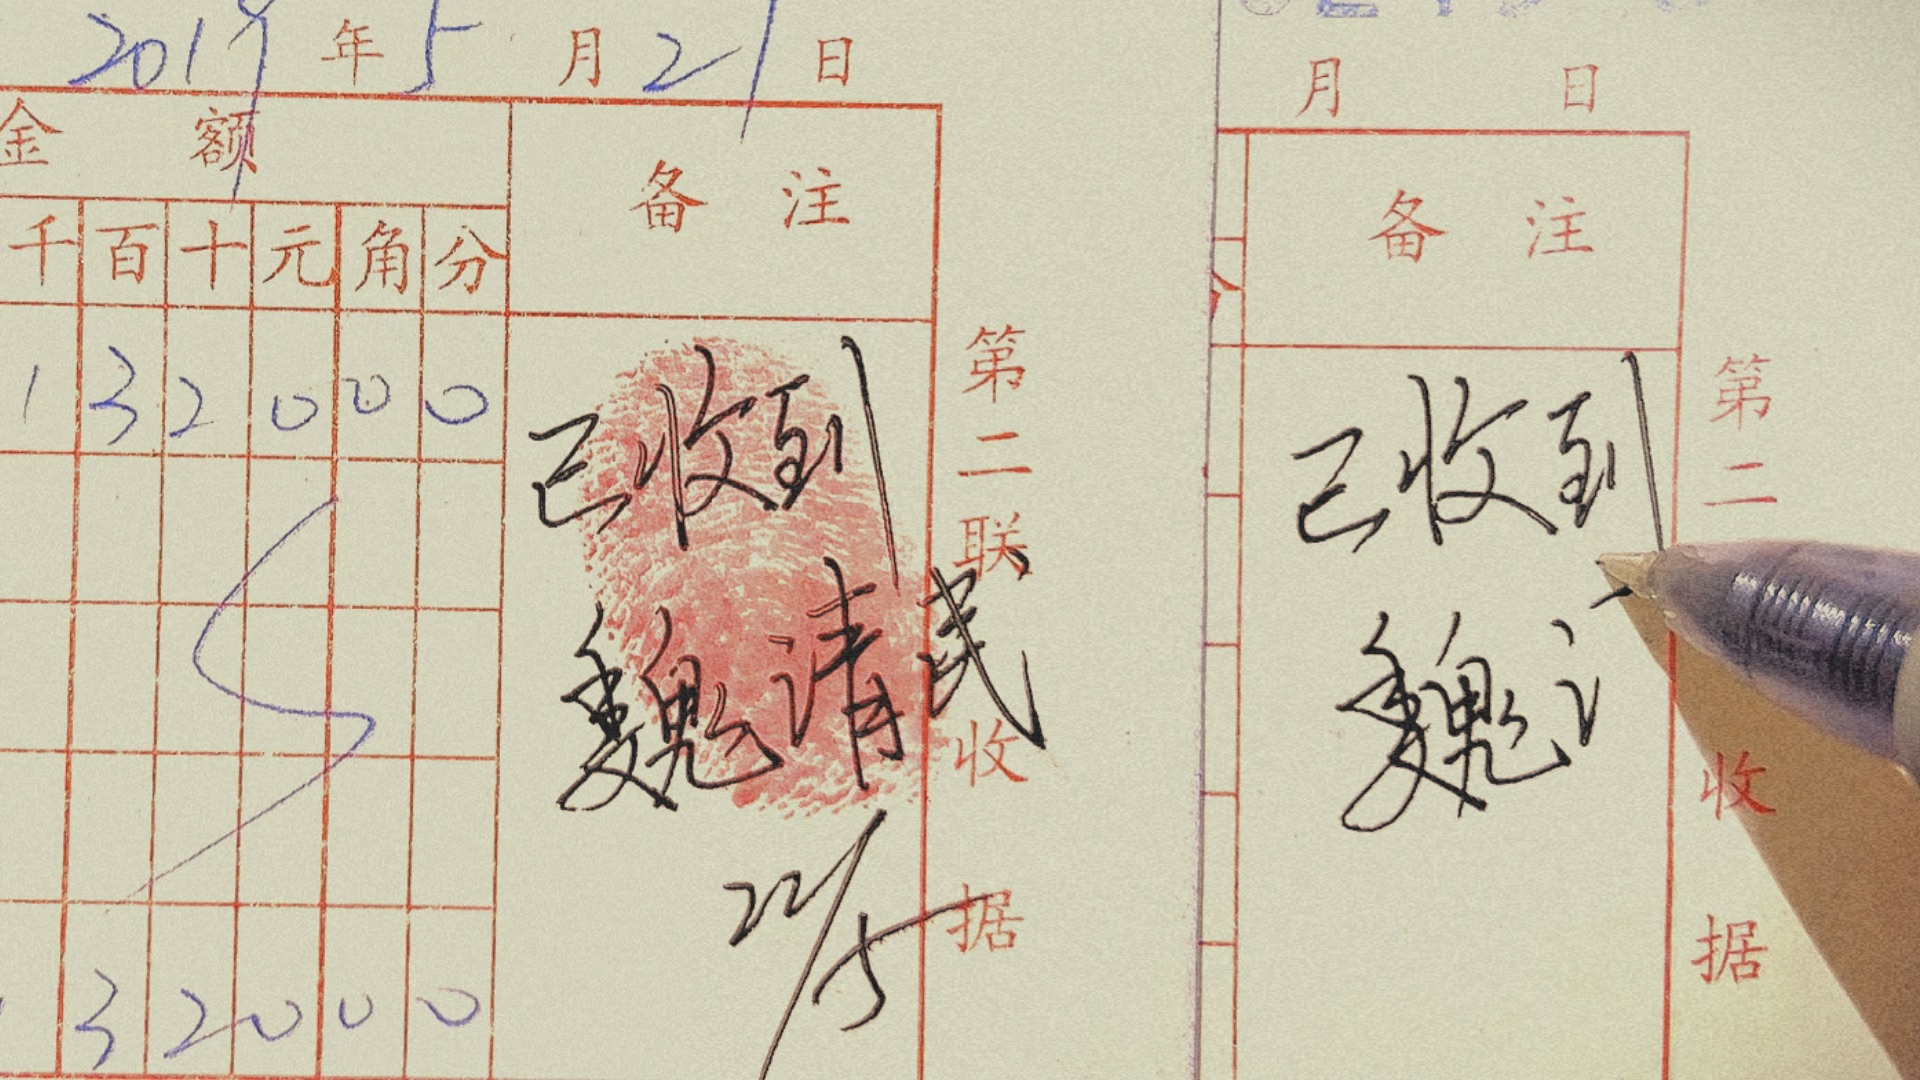 2019年5月21日
金额
备注
千百十元角分
132000
已收到
魏清民
22/5
32000
第二联收据
月日
备注
已收到
魏
第二收据